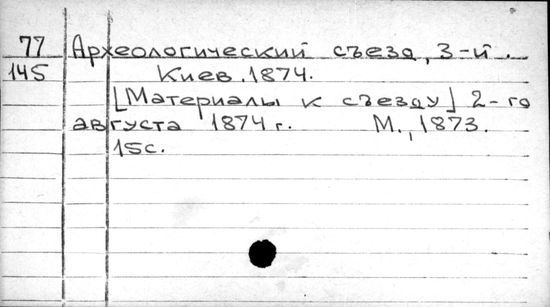 77 Археологический съезд, 3-й.
145 Киев. 1874.
[Материалы к съезду] 2-го
августа 1874 г. М., 1873.
15с.